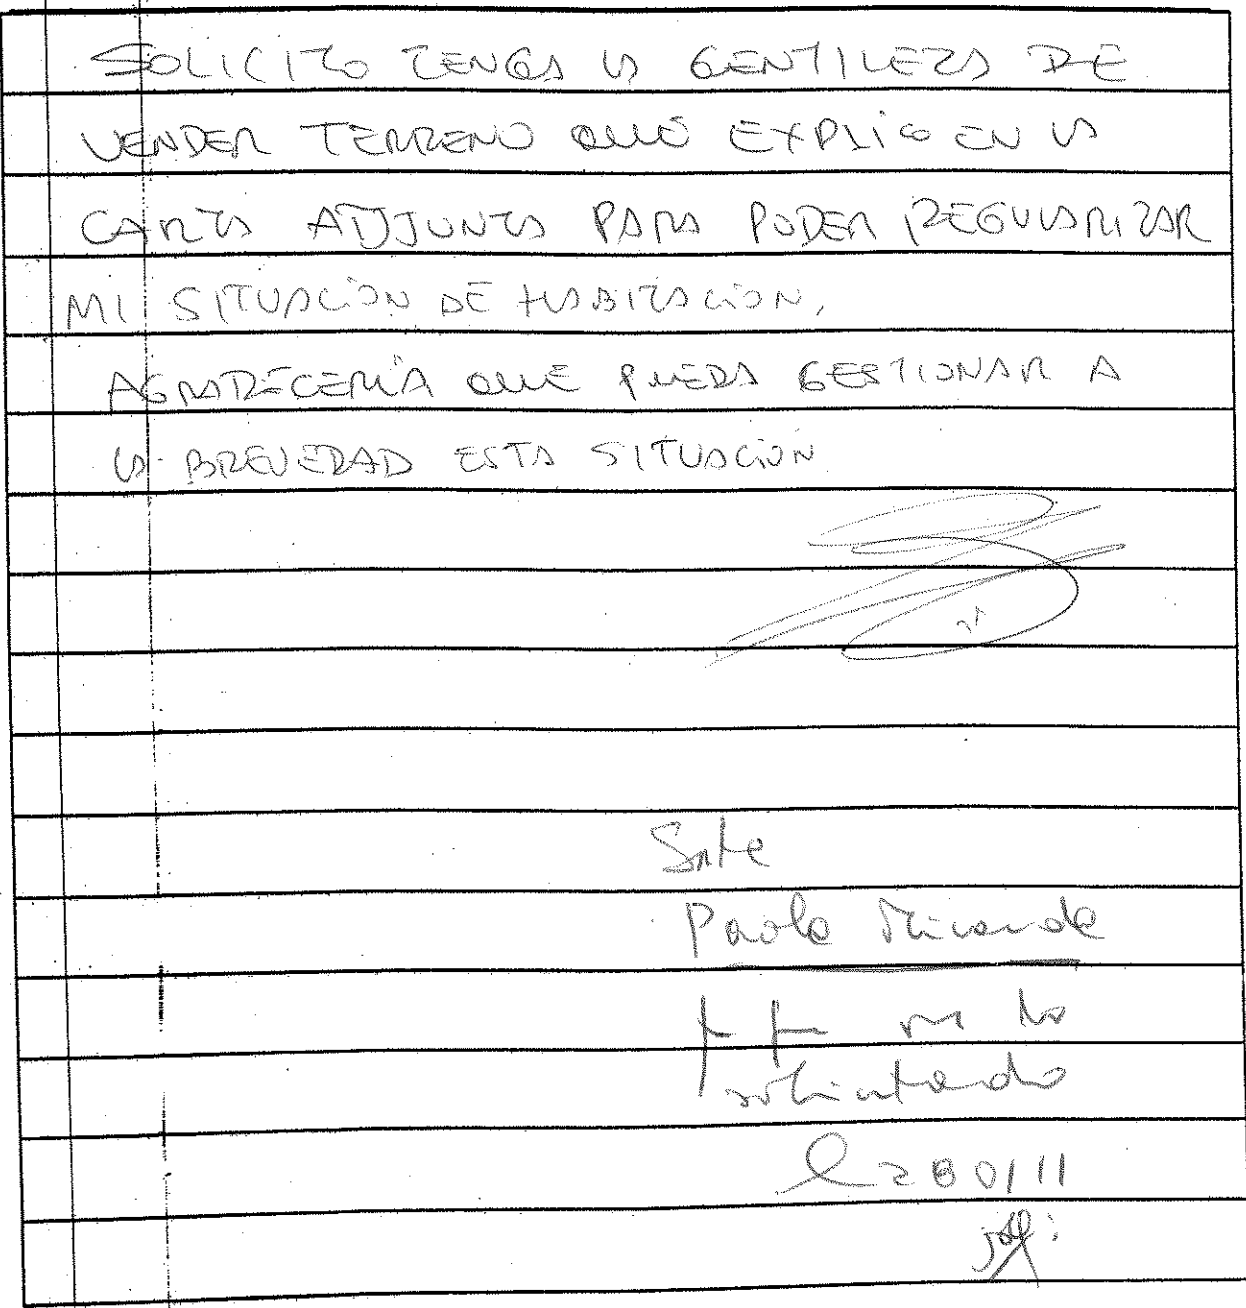 SOLICITO TENGA LA GENTILEZA DE
VENDER TERRENO QUE EXPLICO EN LA
CARTA ADJUNTA PARA PODER REGULARIZAR
MI SITUACIÓN DE HABITACIÓN,
AGRADECERÍA QUE PUEDA GESTIONAR A
LA BREVEDAD ESTA SITUACIÓN
Paola Miranda
lo
solicitado